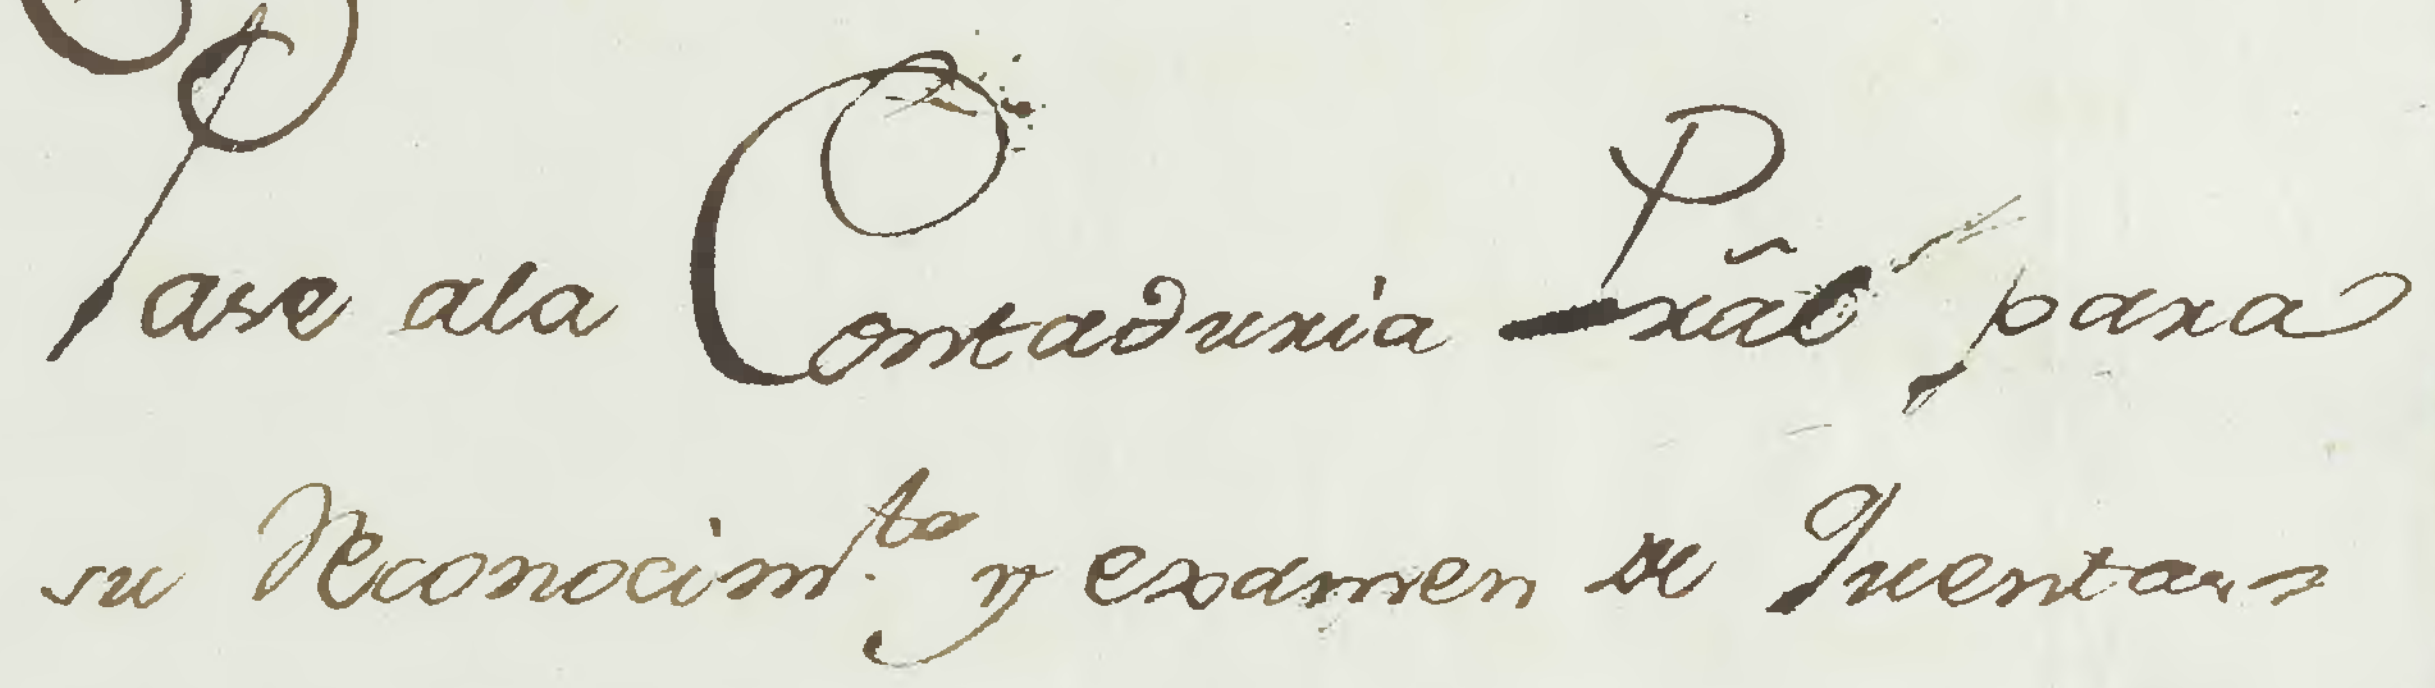 Pase ala Contaduria Prãl para
su Reconocim.to y examen de Quentas